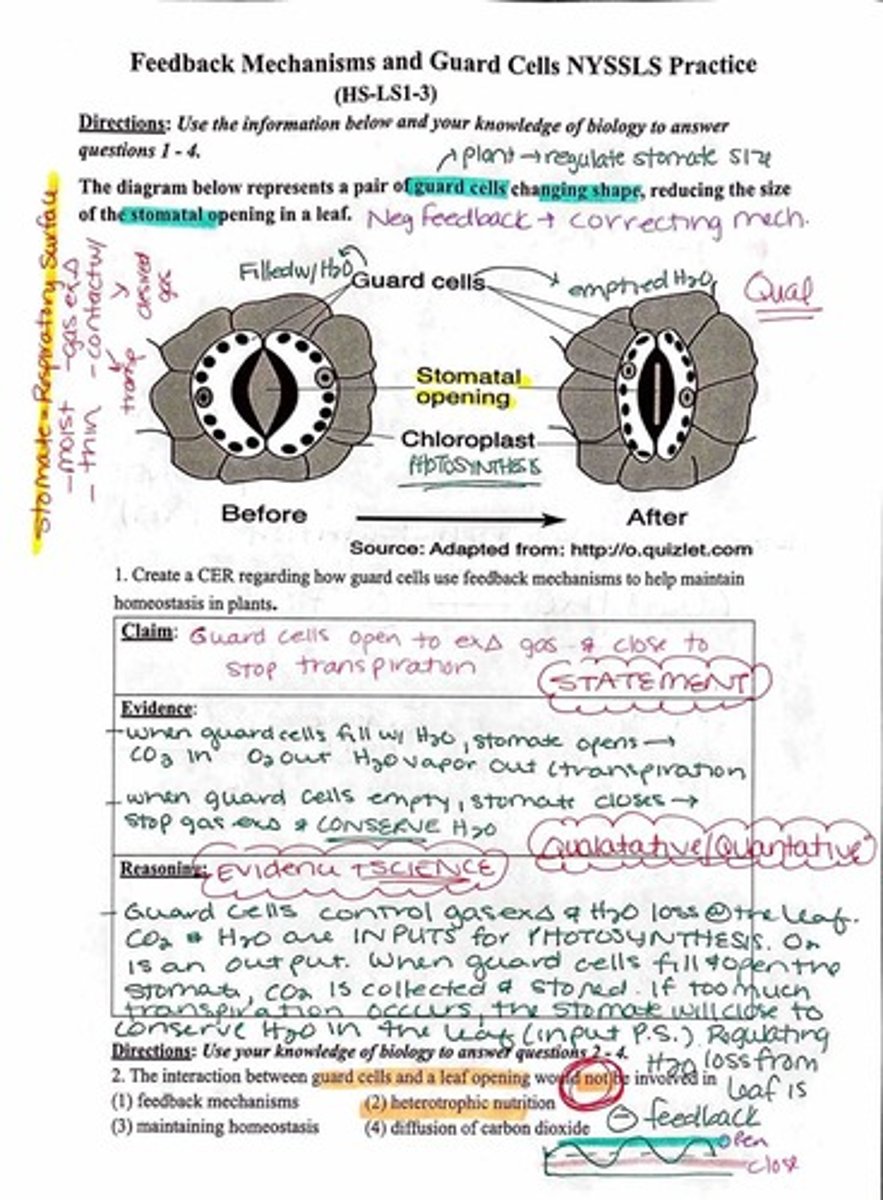 Feedback Mechanisms and Guard Cells NYSSLS Practice
(HS-LS1-3)
Directions: Use the information below and your knowledge of biology to answer
questions 1 - 4.
plant → regulate stomate size
The diagram below represents a pair of guard cells changing shape, reducing the size
of the stomatal opening in a leaf.
Neg feedback → correcting mech.
Stomate = Respiratory Surface
- moist - gas exΔ
- thin - contact w/
desired gas
transp
Filled w/ H2O
Guard cells
emptied H2O
Qual
Stomatal
opening
Chloroplast
PHOTOSYNTHESIS
Before
After
Source: Adapted from: http://o.quizlet.com
1. Create a CER regarding how guard cells use feedback mechanisms to help maintain
homeostasis in plants.
Claim: Guard cells open to exΔ gas & close to
stop transpiration
STATEMENT
Evidence:
- when guard cells fill w/ H2O, stomate opens →
CO2 in O2 out H2O vapor out (transpiration
- when guard cells empty, stomate closes →
stop gas exΔ & CONSERVE H2O
Qualatative/Quantative
Reasoning: Evidence + SCIENCE
- Guard cells control gas exΔ & H2O loss @ the leaf.
CO2 & H2O are INPUTS for PHOTOSYNTHESIS. O2
is an output. When guard cells fill & open the
stomate, CO2 is collected & stored. If too much
transpiration occurs, the stomate will close to
conserve H2O in the leaf (input P.S.) Regulating
H2O loss from
leaf is
⊖ feedback
Directions: Use your knowledge of biology to answer questions 2 - 4.
2. The interaction between guard cells and a leaf opening would not be involved in
(1) feedback mechanisms (2) heterotrophic nutrition
(3) maintaining homeostasis (4) diffusion of carbon dioxide
open
close